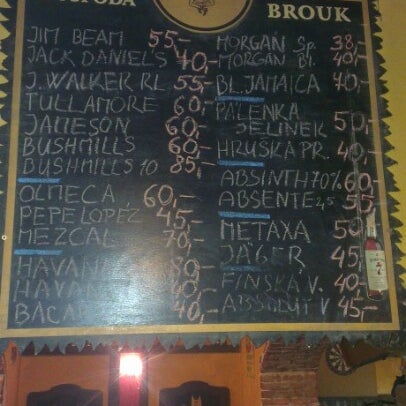 HOSPODA
BROUK
JIM BEAM 55,-
JACK DANIEL'S 40,-
J.WALKER RL. 55,-
TULLAMORE 60,-
JAMESON 60,-
BUSHMILLS 60,-
BUSHMILLS 10 85,-
OLMECA 60,-
PEPE LOPEZ 45,-
MEZCAL 70,-
HAVANA 80,-
HAVAN 60,-
BACA 40,-
MORGAN Sp. 38,-
MORGAN Bl. 40,-
BL. JAMAICA 40,-
PALENKA
JELINEK 50,-
HRUŠKA PR. 40,-
ABSINTH 70% 60,-
ABSENTE 55,-
METAXA 50,-
JÄGER 45,-
FINSKÁ V. 40,-
ABSOLUT V 45,-